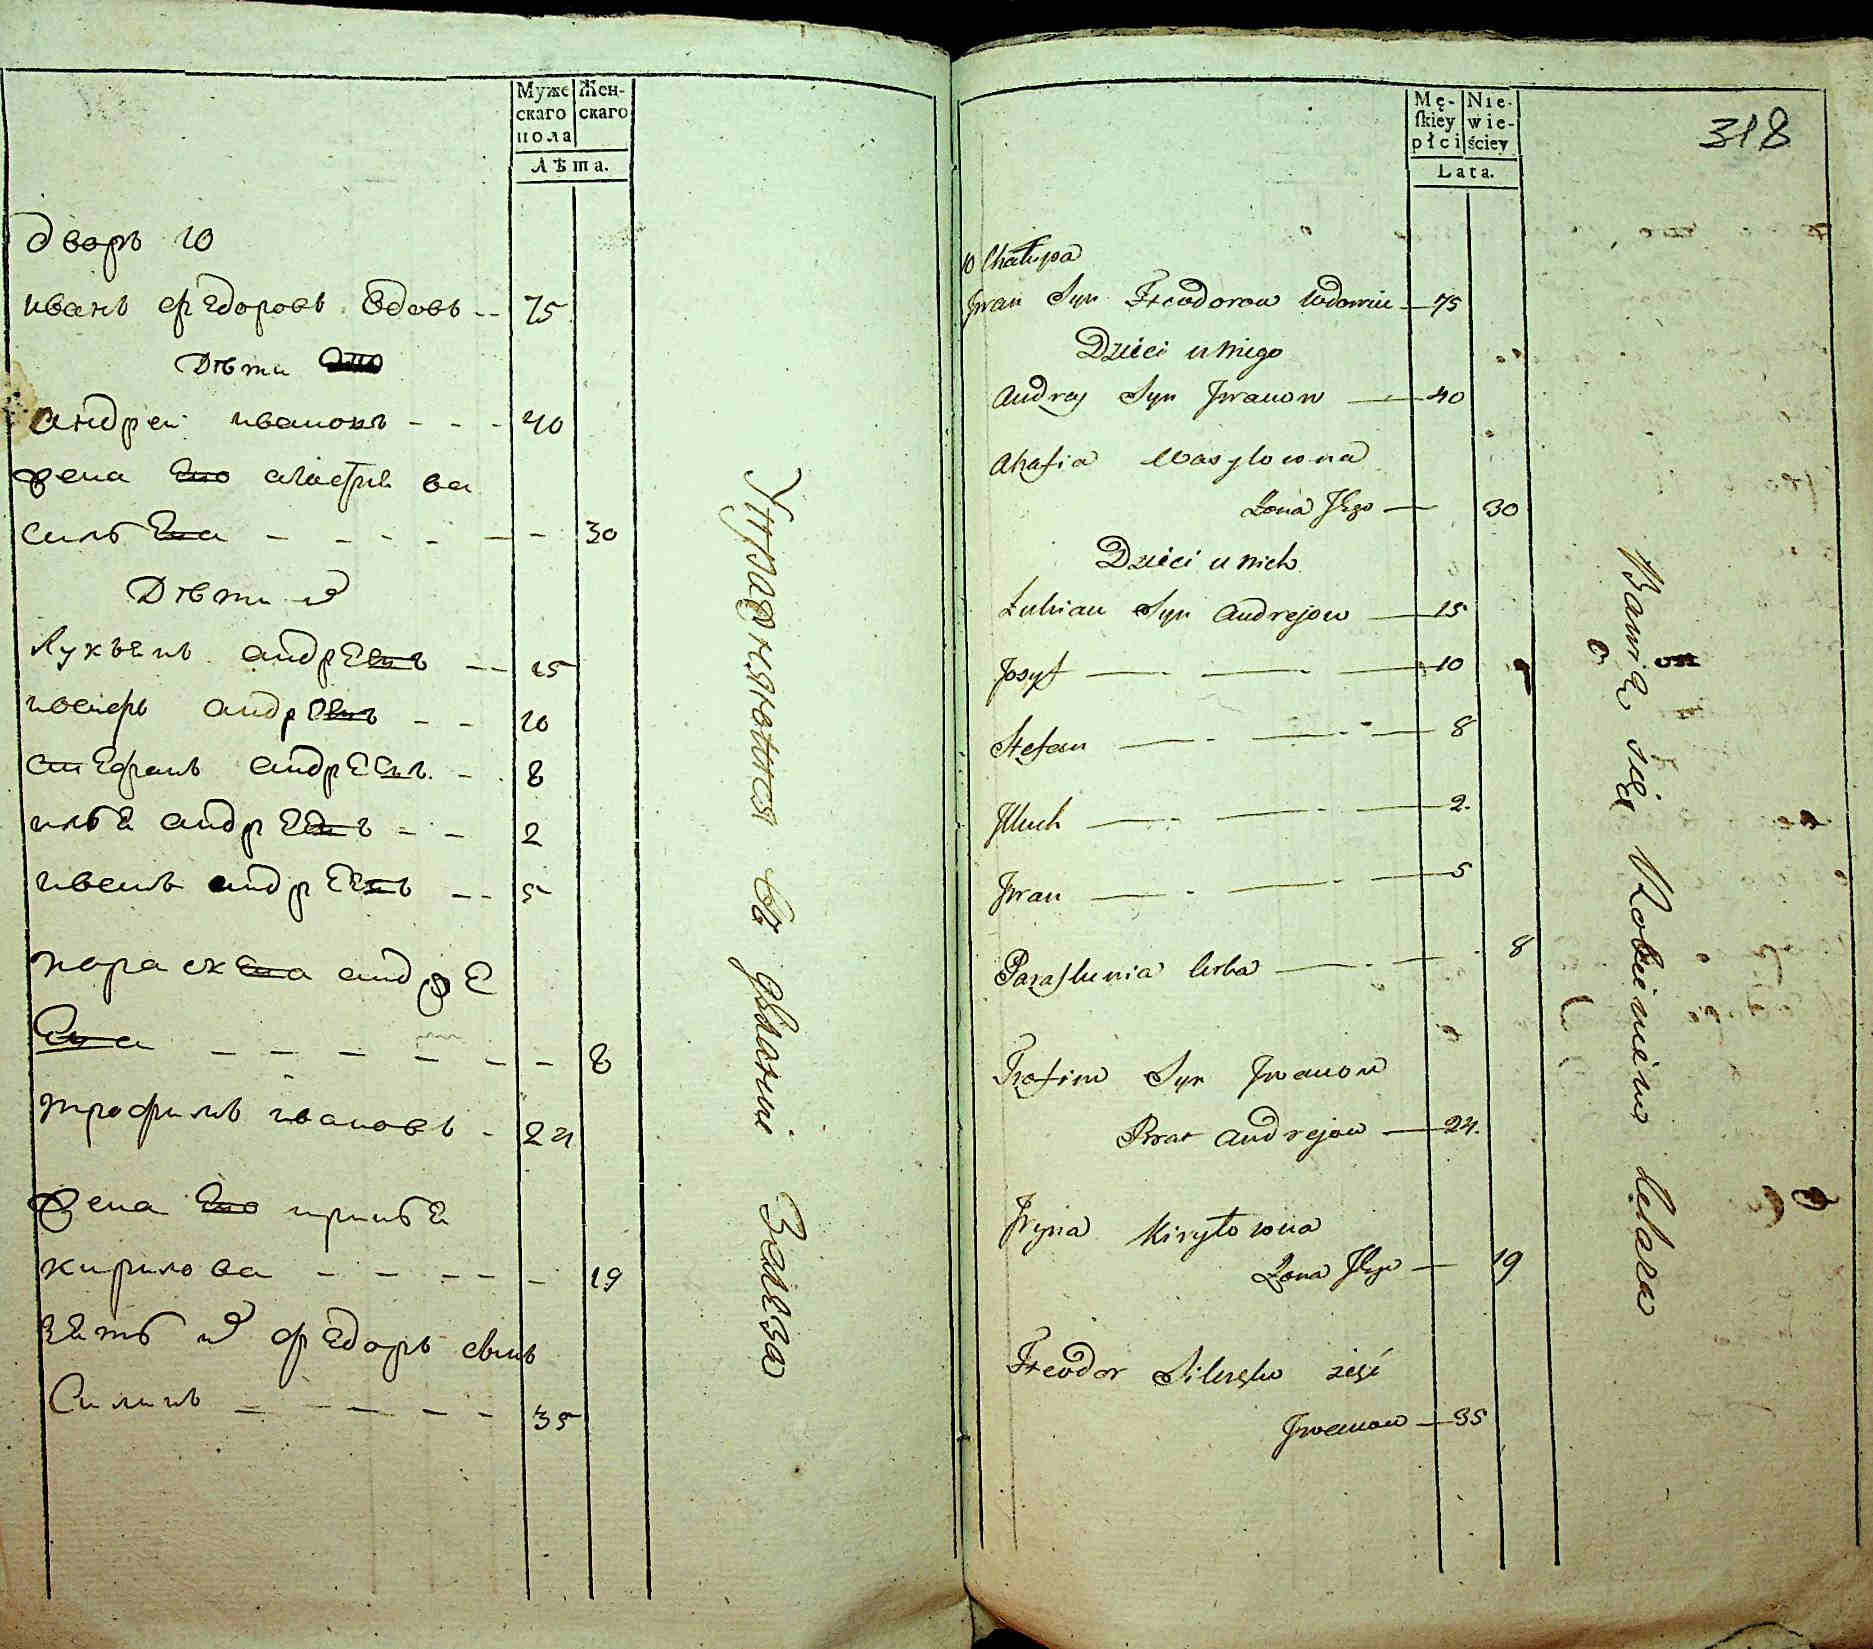 Муже Жен-
скаго скаго
пола
Лѣта.
Дворъ 10
иванъ федоровъ вдовъ -- 75
Дѣти его
андреи ивановъ - - - 40
жена его агафия ва
силева - - - - - - 30
Дѣти их
лукьянъ андреевъ -- 15
иосифъ андреевъ - - 10
стефанъ андреевъ - - 8
илья андреевъ - - 2
иванъ андреевъ -- 5
параскева андре
ева - - - - - - 8
трофимъ ивановъ - 24
жена его ирина
кирилова - - - - - 19
зять их федоръ
35
Упражняются въ дѣлании Зелеза
Mę- Nie-
skiey wie-
płci ściey
Lata.
318
10 Chałupa
Jwan Syn Fteodorow Wdowiec 75
Dzieci u niego
Andrey Syn Jwanow — 40
Ahafia Wasylowna
Żona Jego — 30
Dzieci u nich
Łukian Syn Andrejow — 15
Josyf — — — 10
Stefan — - — - — 8
— - — - — 2.
Jwan — - — - — 5
Corka — - — - 8
Trofim Syn Jwanow
Brat Andrejow — 24.
Jryna Kiryłowna
Żona Jego — 19
Fteodor zięć
Jwanow — 35
Bawią się Robieniem